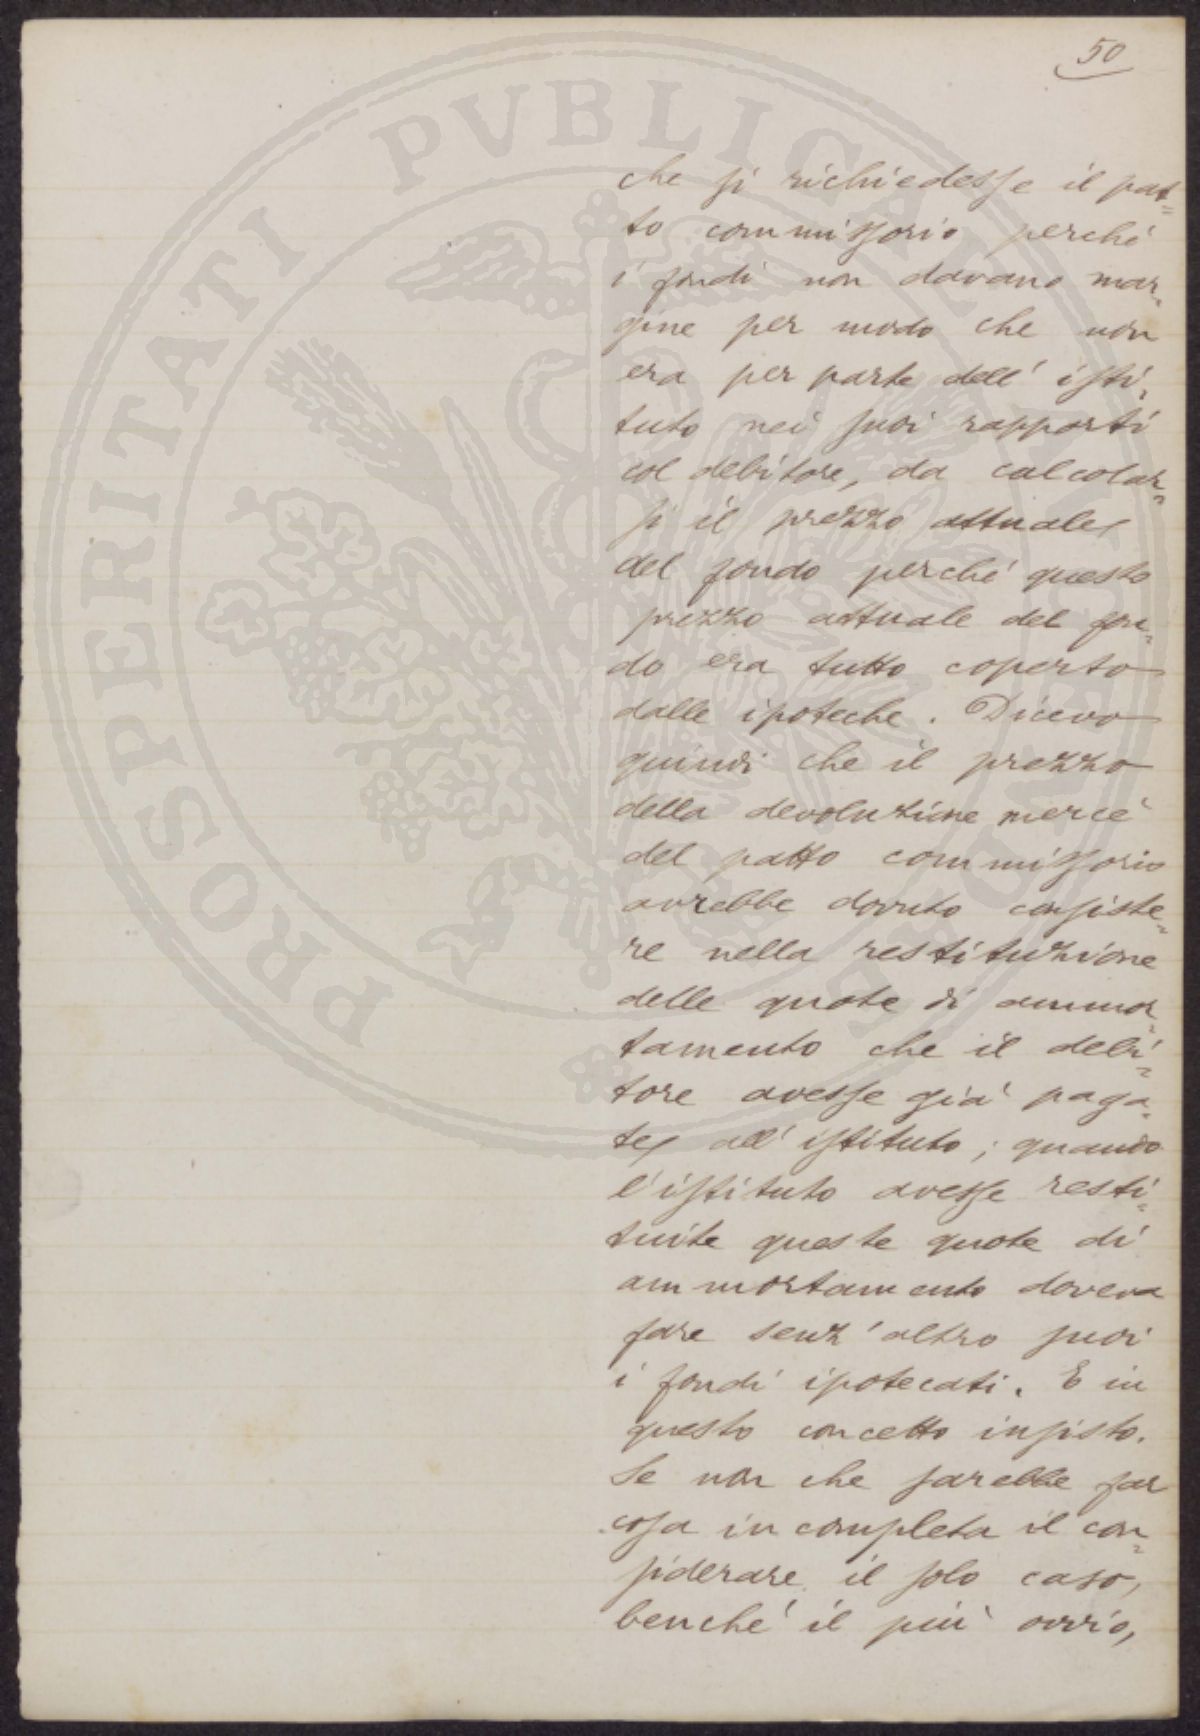 50
che si richiedesse il pat=
to commissorio perché
i fondi non davano mar=
gine per modo che non
era per parte dell' isti=
tuto nei suoi rapporti
col debitore, da calcolar=
si il prezzo attuale
del fondo perché questo
prezzo attuale del fon=
do era tutto coperto
dalle ipoteche. Dicevo
quindi che il prezzo
della devoluzione mercè
del patto commissorio
avrebbe dovuto consiste=
re nella restituzione
delle quote di ammor=
tamento che il debi=
tore avesse già paga=
te all' istituto; quando
l'istituto avesse resti=
tuite queste quote di
ammortamento doveva
fare senz'altro suoi
i fondi ipotecati. E in
questo concetto insisto.
Se non che sarebbe far
cosa incompleta il con=
siderare il solo caso,
benché il più ovvio,
PROSPERITATI PVBLICAE